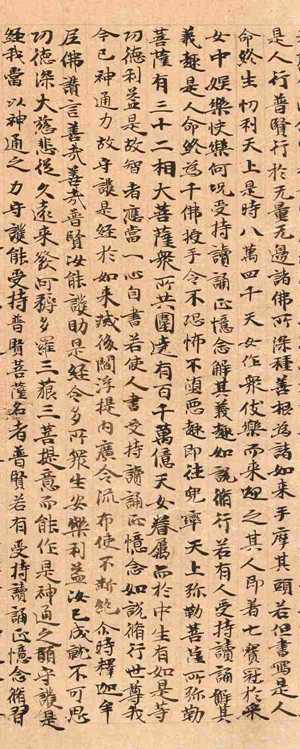 是人行普賢行於无量无邊諸佛所深種善根為諸如來手摩其頭若但書寫是人
命終生忉利天上是時八萬四千天女作眾伎樂而來迎之其人即著七寶冠於采
女中娛樂快樂何況受持讀誦正憶念解其義趣如說脩行若有人受持讀誦解其
義趣是人命終為千佛授手令不恐怖不墮惡趣即往兜率天上弥勒菩薩所弥勒
菩薩有三十二相大菩薩眾所共圍遶有百千萬億天女眷屬而於中生有如是等
功德利益是故智者應當一心自書若使人書受持讀誦正憶念如說脩行世尊我
今已神通力故守護是經於如來滅後閻浮提內廣令流布使不斷絕尒時釋迦牟
尼佛讚言善哉善哉普賢汝能護助是經令多所眾生安樂利益汝已成就不可思
功德深大慈悲從久遠來發阿耨多羅三藐三菩提意而能作是神通之願守護是
經我當以神通之力守護能受持普賢菩薩名者普賢若有受持讀誦正憶念脩習